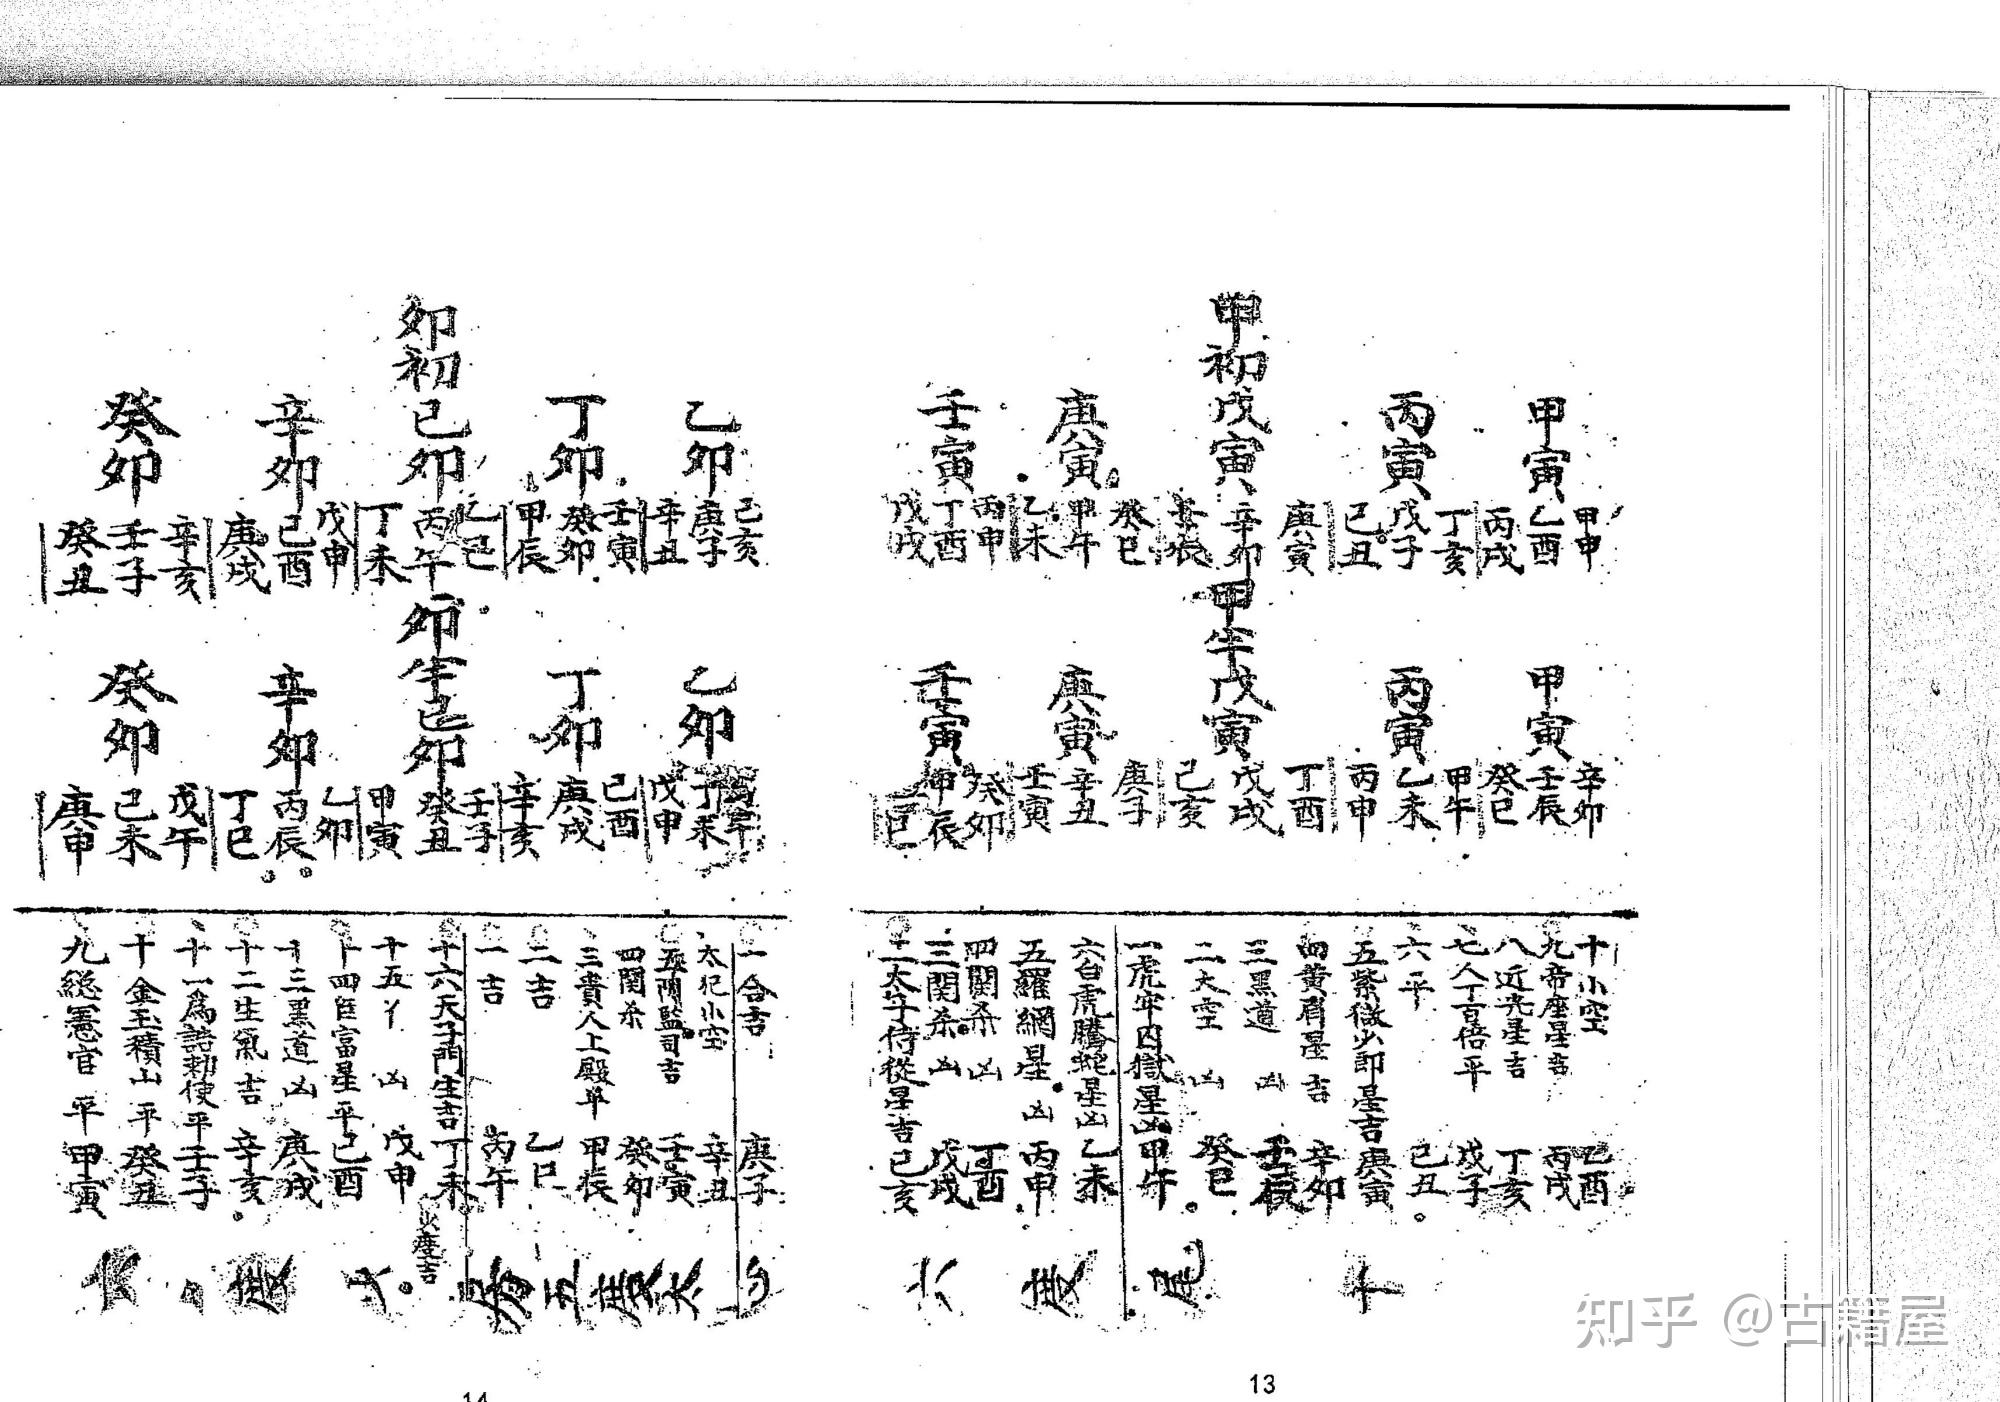 甲寅
甲申
乙酉
丙戌
丙寅
丁亥
戊子
己丑
甲初戊寅
庚寅
辛卯
庚寅
癸巳
甲午
乙未
壬寅
丙申
丁酉
戊戌
甲寅
辛卯
壬辰
癸巳
丙寅
甲午
乙未
丙申
甲半戊寅
丁酉
戊戌
己亥
庚寅
庚子
辛丑
壬寅
壬寅
癸卯
甲辰
十小空 乙酉
九帝座星吉 丙戌
八近光星吉 丁亥
七人丁百倍平 戊子
六平 己丑
五紫微少郎星吉 庚寅
四黄眉星吉 辛卯
三黑道凶 壬辰
二大空凶 癸巳
一虎牢囚獄星凶 甲午
六白虎騰蛇星凶 乙未
五羅網星凶 丙申
四關杀凶 丁酉
三關杀凶 戊戌
二太子侍從星吉 己亥
13
乙卯
己亥
庚子
辛丑
丁卯
壬寅
癸卯
甲辰
卯初己卯
乙巳
丙午
丁未
辛卯
戊申
己酉
庚戌
癸卯
辛亥
壬子
癸丑
乙卯
戊申
丁卯
己酉
庚戌
辛亥
卯半己卯
壬子
癸丑
甲寅
辛卯
乙卯
丙辰
丁巳
癸卯
戊午
己未
庚申
一合吉 庚子
太犯小空 辛丑
五閣監司吉 壬寅
四関杀 癸卯
三貴人上殿平 甲辰
二吉 乙巳
一吉 丙午
十六天子門生吉 丁未
十五 凶 戊申
十四臣富星平 己酉
十三黑道凶 庚戌
十二生氣吉 辛亥
十一爲誥勅使平 壬子
十金玉積山平 癸丑
九総憲官平 甲寅
14
知乎 @古籍屋